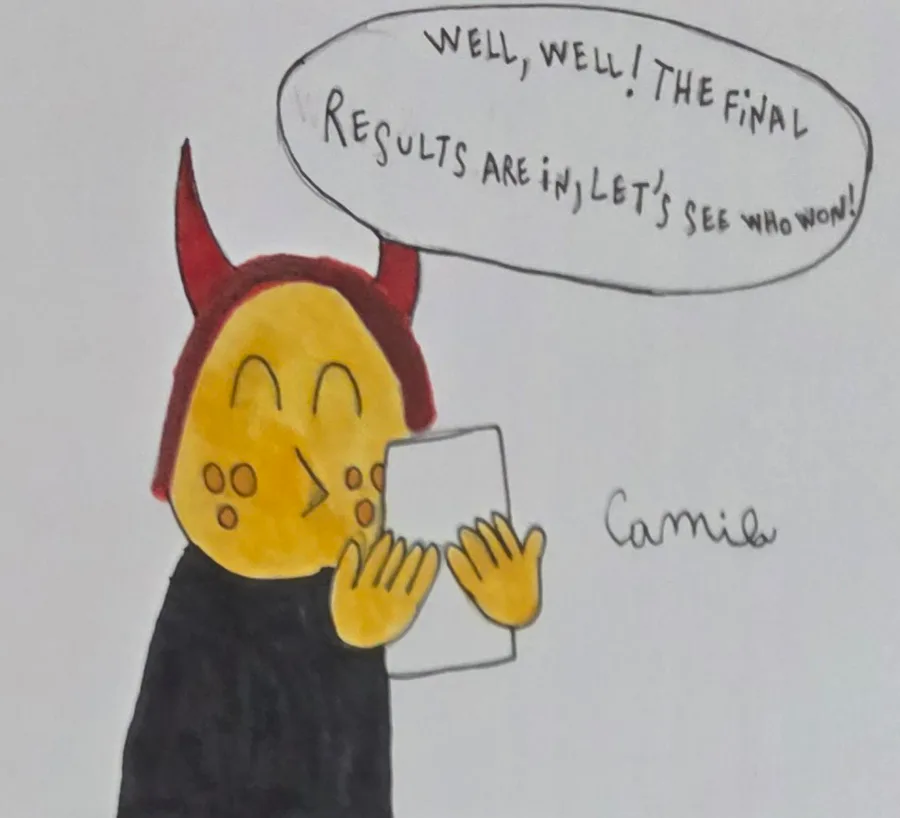 WELL, WELL! THE FiNAL
RESULTS ARE iN, LET'S SEE WHO WON!
Camie